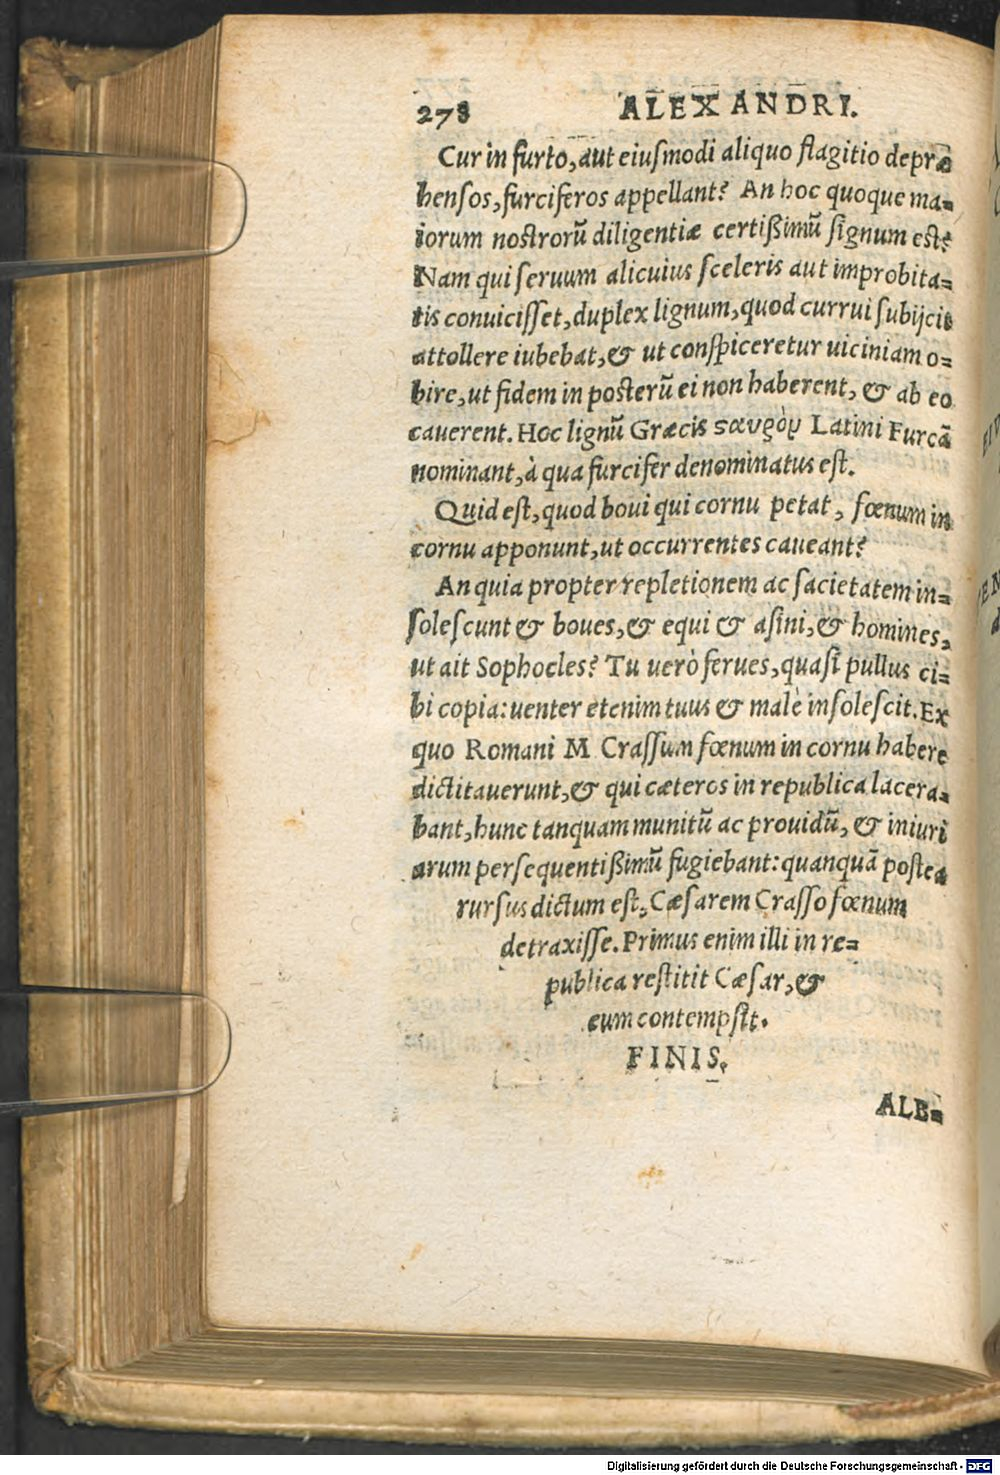 278 ALEXANDRI.
Cur in furto, aut eiuſmodi aliquo flagitio depræ
henſos, furciferos appellant? An hoc quoque ma=
iorum noſtrorũ diligentiæ certißimũ ſignum eſt?
Nam qui ſeruum alicuius ſceleris aut improbita=
tis conuiciſſet, duplex lignum, quod currui ſubijcit
attollere iubebat, & ut conſpiceretur uiciniam o=
bire, ut fidem in poſterũ ei non haberent, & ab eo
cauerent. Hoc lignũ Græcis ςαυρὸν Latini Furcã
nominant, à qua furcifer denominatus eſt.
Quid eſt, quod boui qui cornu petat, fœnum in
cornu apponunt, ut occurrentes caueant?
An quia propter repletionem ac ſacietatem in=
ſoleſcunt & boues, & equi & aſini, & homines,
ut ait Sophocles? Tu uerò ferues, quaſi pullus ci=
bi copia: uenter etenim tuus & malè inſoleſcit. Ex
quo Romani M Craſſum fœnum in cornu habere
dictitauerunt, & qui cæteros in republica lacera=
bant, hunc tanquam munitũ ac prouidũ, & iniuri
arum perſequentißimũ fugiebant: quanquã poſtea
rurſus dictum eſt, Cæſarem Craſſo fœnum
detraxiſſe. Primus enim illi in re=
publica reſtitit Cæſar, &
eum contempſit.
FINIS.
ALE=
Digitalisierung gefördert durch die Deutsche Forschungsgemeinschaft - DFG